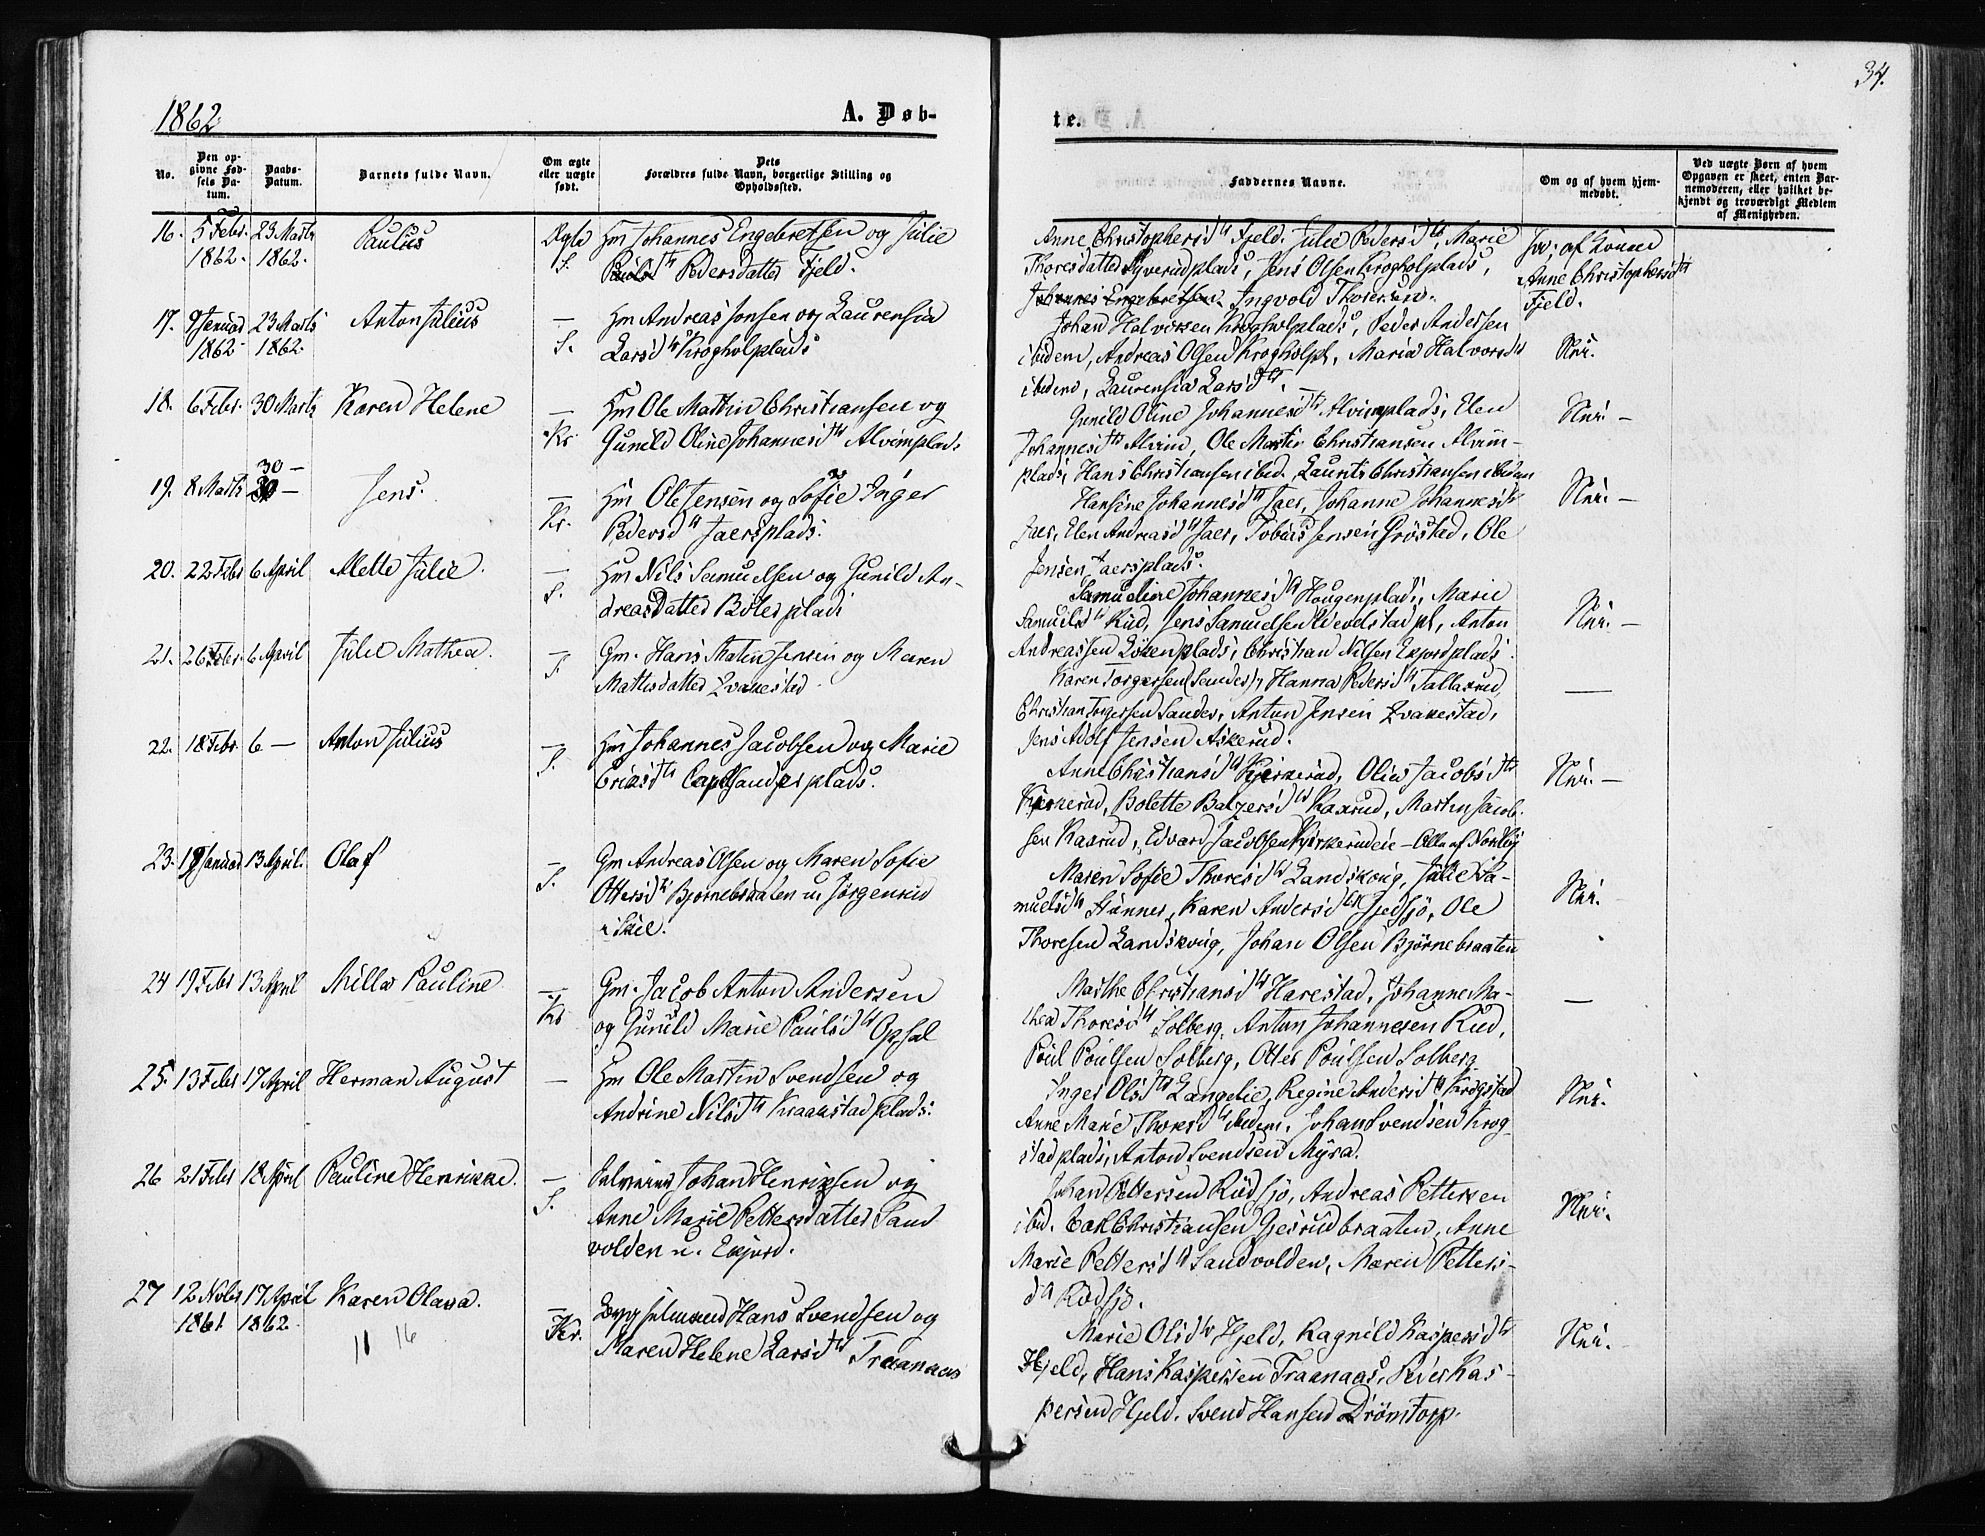 34.
1862
A. Døb-
te.
No.
Den opgivne Fødsels Datum.
Daabs-Datum.
Barnets fulde Navn.
Om ægte eller uægte født.
Dets Forældres fulde Navn, borgerlige Stilling og Opholdssted.
Faddernes Navne.
Om og af hvem hjemmedøbt.
Ved uægte Børn af hvem Opgaven er skeet, enten Barnemoderen, eller hvilket bekjendt og troværdigt Medlem af Menigheden.
16. 5 Febr. 23 Marts Paulus Ægte Hm Johannes Engebretsen og Julie
1862. 1862. S. Pedersdatter Fjeld.
Anne Christophersd tr Fjeld. Julie Pedersd tr, Marie
Thoresdatter plads, Jens Olsen Krogholplads,
Johannes Engebretsen. Ingvold Thoresen.
Jo; af Konen
Anne Christophersd tr
Fjeld.
17. 9 Januar 23 Marts Anton Julius Hm Andreas Jonsen og Laurensia
1862 1862. S. Larsd tr Krogholplads
Johan Halvorsen Krogholplads, Peder Andersen
ibidem, Andreas Olsen Krogholpl, Maria Halvorsd tr
ibidem, Laurensia Larsd tr.
Nei.
18. 6 Febr. 30 Marts Karen Helene — Hm Ole Martin Christiansen og
Kr Gunild Oline Johannesd tr Alvimplads
Gunild Oline Johannesd tr Alvimplads, Elen
Johannesd tr Alvim, Ole Martin Christiansen Alvim-
plads, Hans Christiansen ibid. Laurits Christiansen ibidem
Nei. —
19. 8 Marts 30 — Jens. — Hm Ole Jensen og Sofie Inger
Kr. Pedersd tr Jaersplads.
Hansine Johannesd tr Jaer, Johanne Johannesd tr
Jaer, Elen Andreasd tr Jaer, Tobias Jensen Grøstad, Ole
Jensen Jaersplads.
Nei. —
20. 22 Febr 6 April Alette Julie. — Hm Nils Samuelsen og Gunild An-
S. dreasdatter Bølerplads
Samueline Johannesd tr Hougenplads, Marie
Samuelsd tr Rud, Jens Samuelsen pl, Anton
Andreassen Løkenplads, Christian Nilsen Ekjordplads.
Nei. —
21. 26 Febr. 6 April Julie Mathea. — Gm. Hans Matin Jensen og Maren
S Mathisdatter Kvakestad.
Karen Torgersen (Sander), Hanna Pedersd tr Tallaxrud,
Christian Torgersen Sander, Anton Jensen Kvakestad,
Jens Adolf Jensen Askerud.
—
22. 18 Febr 6 — Anton Julius — Hm Johannes Jacobsen og Marie
S. Eriksd tr plads.
Anne Christiansd tr Kjerkerud, Olia Jacobsd tr
Kjerkerud, Bolette Balzersd tr Kaxrud, Martin Jacob-
sen Kaxrud, Edvard Jacobsen — Alle af Nordby
Nei. —
23. 19 Januar 13 April. Olaf — Gm Andreas Olsen og Maren Sofie
S. Ottersd tr Bjørnebraaten u. Jørgensrud
i Skie.
Maren Sofie Thoresd tr Landskoug, Julie Sa-
muelsd tr Stunner, Karen Andersd tr Gjedsjø, Ole
Thoresen Landskoug, Johan Olsen Bjørnebraaten
Nei.
24 19 Febr 13 April Milla Pauline — Gm. Jacob Anton Andersen
Kr og Gunild Marie Paulsd tr Opsal
Marthe Christiansd tr Harestad, Johanne Ma-
thea Thoresd tr Solberg, Anton Johannesen Rud,
Poul Poulsen Solberg, Otter Poulsen Solberg.
—
25. 13 Febr 17 April Herman August — Hm Ole Martin Svendsen og
Andrine Nilsd tr Kraakstad plads.
Inger Olsd tr Langelie, Regine Andersd tr Krogstad
Anne Marie Thoresd tr ibidem, Johan Svendsen Krog-
stadplads, Anton Svendsen Myra.
Nei.
26 21 Febr 18 April Pauline Henrikke. — Johan Henriksen og
S. Anne Marie Pettersdatter Sand
volden u. Ekjord.
Johan Pettersen Rudsjø, Andreas Pettersen
ibid. Carl Christiansen Gjesrudbraaten, Anne
Marie Pettersd tr Sandvolden, Maren Petters-
d tr Rudsjø.
Nei.
27 12 Novbr 17 April Karen Olava. — Hans Svendsen og
1861. 1862. Kr. Maren Helene Larsd tr Traanaas
11 16
Marie Olsd tr Hjeld, Ragnild Kaspersd tr
Hjeld, Hans Kaspersen Traanaas, Peder Kas-
persen Hjeld. Svend Hansen Drømtorp.
Nei.